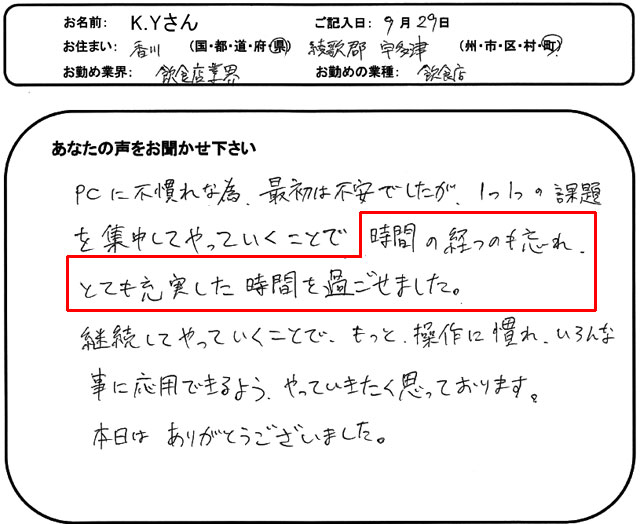 お名前： K.Yさん ご記入日： 9月29日
お住まい： 香川 （国・都・道・府・県） 綾歌郡 宇多津 （州・市・区・村・町）
お勤め業界： 飲食店業界 お勤めの業種： 飲食店
あなたの声をお聞かせ下さい
PCに不慣れな為、最初は不安でしたが、1つ1つの課題
を集中してやっていくことで 時間の経つのも忘れ、
とても充実した時間を過ごせました。
継続してやっていくことで、もっと、操作に慣れ、いろんな
事に応用できるよう、やっていきたく思っております。
本日は ありがとうございました。